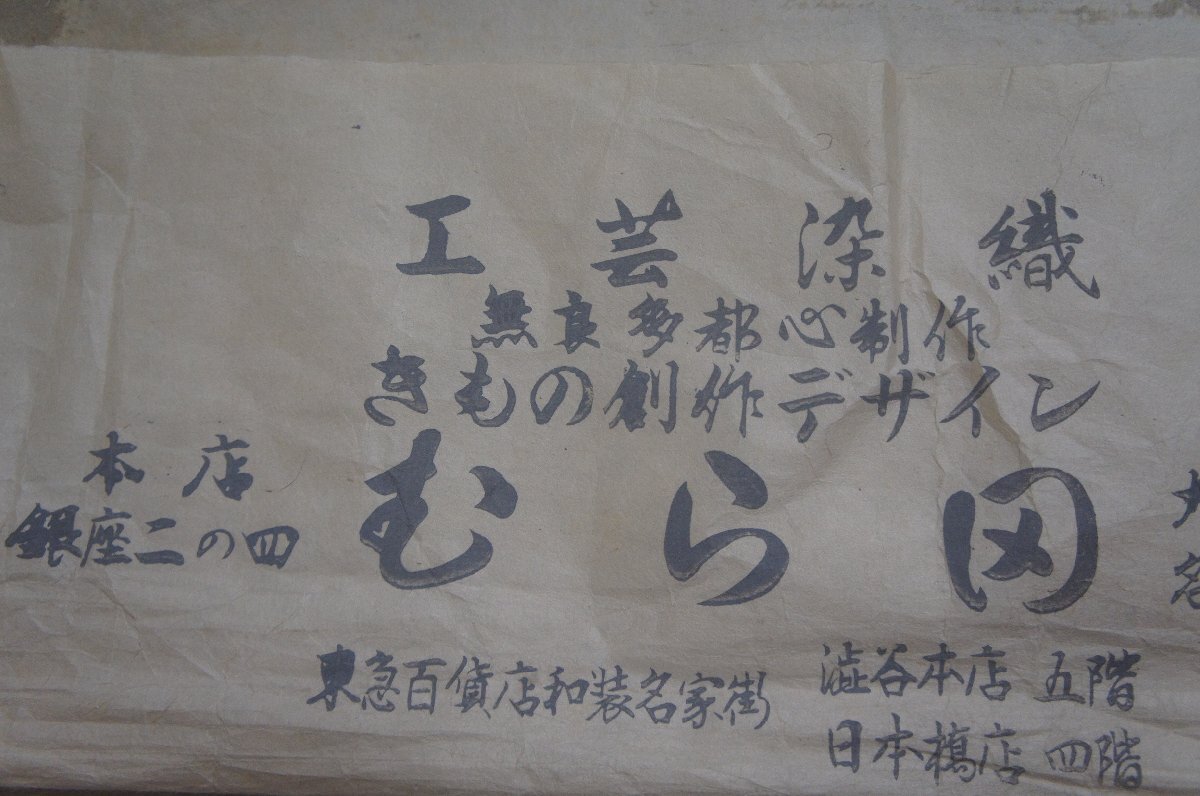 工芸染織
無良多都心制作
きもの創作デザイン
むら田
本店
銀座二の四
東急百貨店和装名家街
澁谷本店 五階
日本橋店 四階